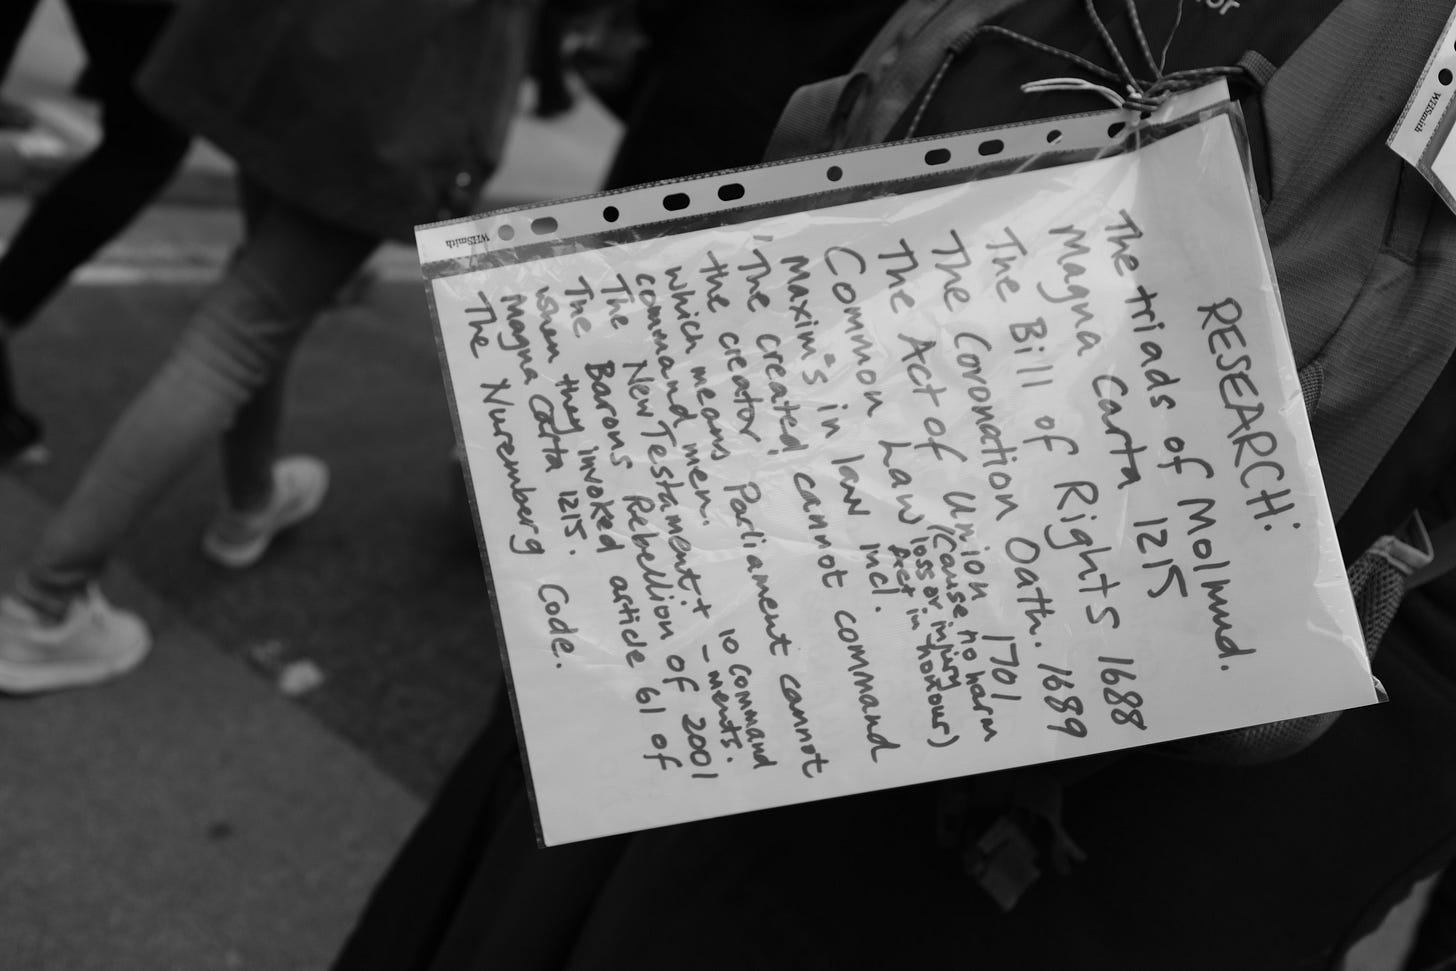 RESEARCH:
The triads of Molmud.
Magna Carta 1215
The Bill of Rights 1688
The Coronation Oath. 1689
The Act of Union 1701
Common Law (cause no harm
loss or injury
Act in honour)
Maxim's in law incl.
'The created cannot command
the creator Parliament cannot
which means 10 command
command men. - ments.
The New Testament. +
The Barons Rebellion of 2001
when they invoked article 61 of
Magna Carta 1215.
The Nuremberg Code.
WHSmith
WHSmith